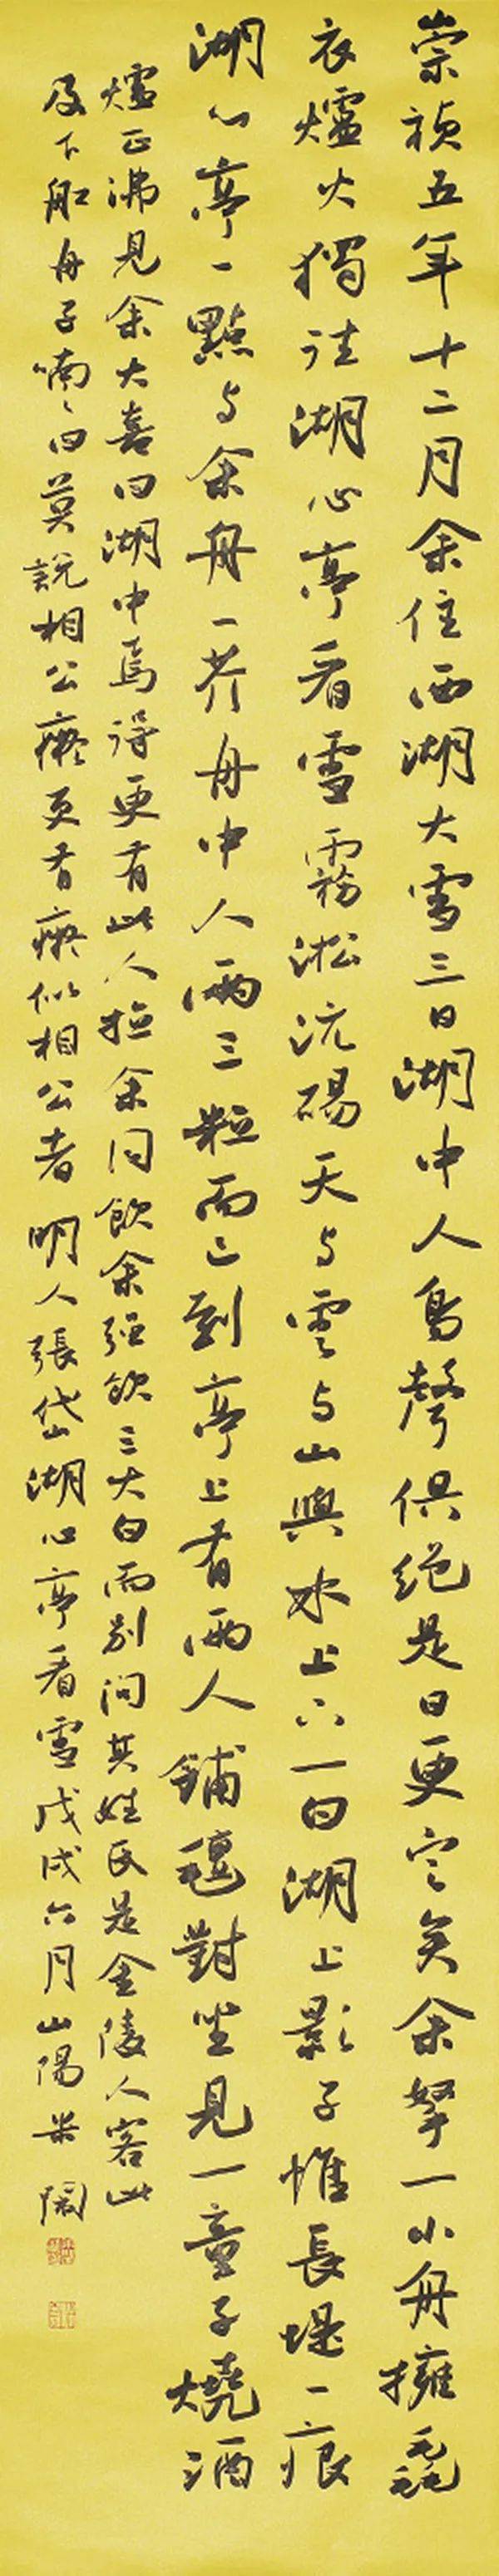 崇禎五年十二月余住西湖大雪三日湖中人鳥聲俱絕是日更定矣余拏一小舟擁毳
衣爐火獨往湖心亭看雪霧淞沆碭天与雲与山與水上下一白湖上影子惟長堤一痕
湖心亭一點与余舟一芥舟中人兩三粒而已到亭上有兩人鋪氈對坐見一童子燒酒
爐正沸見余大喜曰湖中焉得更有此人拉余同飲余強飲三大白而別問其姓氏是金陵人客此
及下船舟子喃々曰莫說相公癡更有癡似相公者 明人張岱湖心亭看雪戊戌六月山陽米